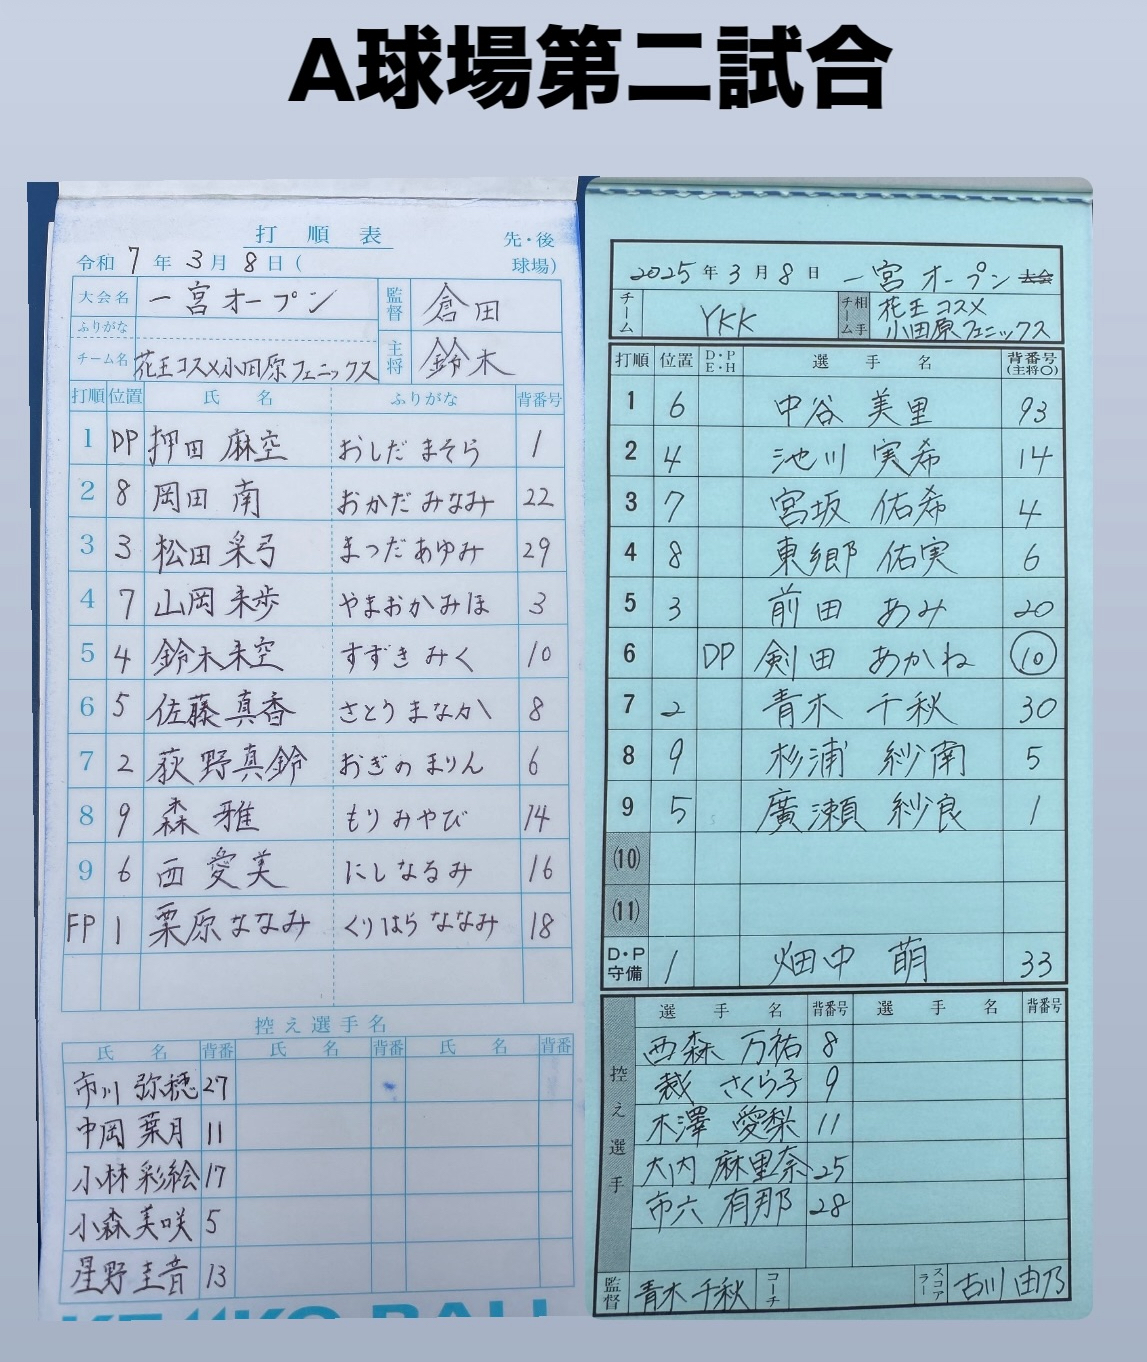 A球場第二試合
打順表
先・後
令和 7 年 3 月 8 日 ( 球場)
大会名 一宮オープン 監督 倉田
ふりがな
チーム名 花王コスメ小田原フェニックス 主将 鈴木
打順 位置 氏名 ふりがな 背番号
1 DP 押田 麻空 おしだ まそら 1
2 8 岡田 南 おかだ みなみ 22
3 3 松田 采弓 まつだ あゆみ 29
4 7 山岡 未歩 やまおか みほ 3
5 4 鈴木 未空 すずき みく 10
6 5 佐藤 真香 さとう まなか 8
7 2 荻野 真鈴 おぎの まりん 6
8 9 森 雅 もり みやび 14
9 6 西 愛美 にし なるみ 16
FP 1 栗原 ななみ くりはら ななみ 18
控え選手名
氏名 背番 氏名 背番 氏名 背番
市川 弥穂 27
中岡 葉月 11
小林 彩絵 17
小森 美咲 5
星野 圭音 13
2025 年 3 月 8 日 一宮オープン 大会
チーム YKK 相手チーム 花王コスメ
小田原フェニックス
打順 位置 D・P E・H 選手名 背番号 (主将○)
1 6 中谷 美里 93
2 4 池川 実希 14
3 7 宮坂 佑希 4
4 8 東郷 佑実 6
5 3 前田 あみ 20
6 DP 剣田 あかね 10
7 2 青木 千秋 30
8 9 杉浦 紗南 5
9 5 廣瀬 紗良 1
(10)
(11)
D・P 守備 1 畑中 萌 33
控え選手 選手名 背番号 選手名 背番号
西森 万祐 8
裁 さくら子 9
木澤 愛梨 11
大内 麻里奈 25
市六 有那 28
監督 青木 千秋 コーチ スコアラー 古川 由乃